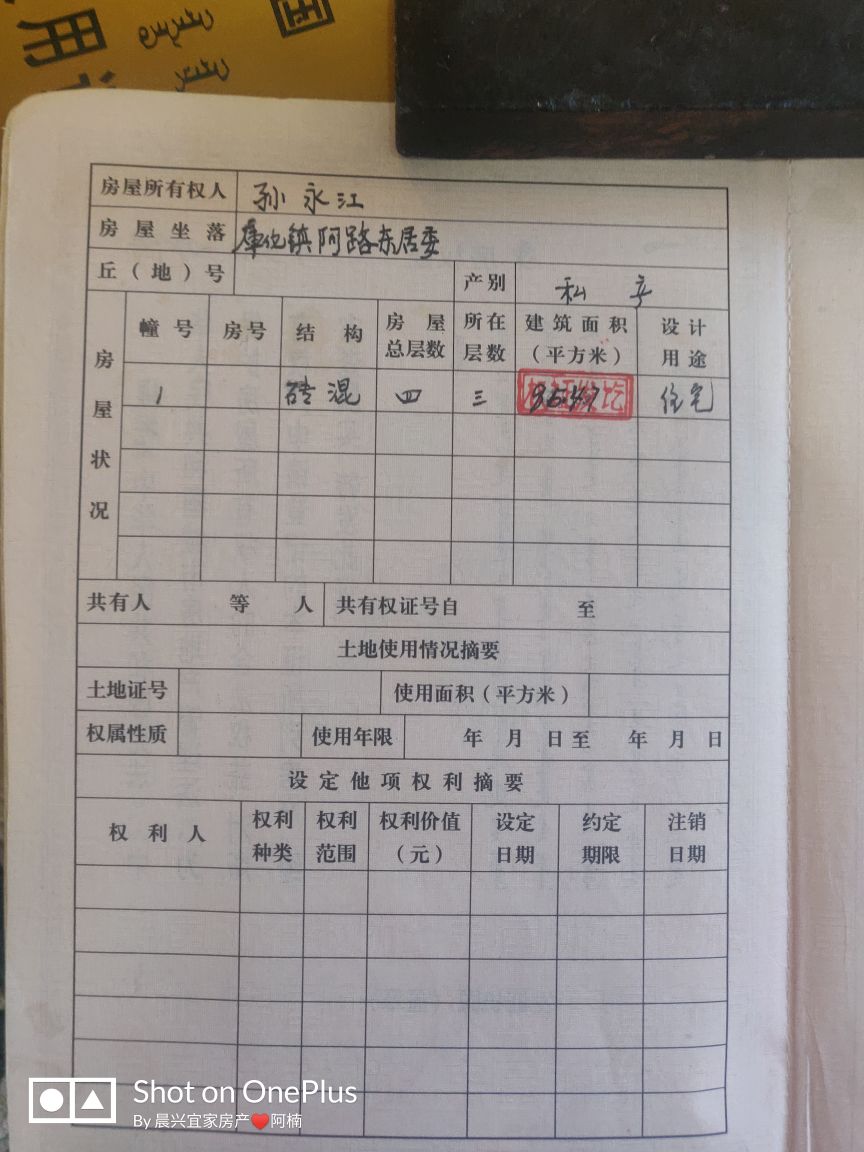 国
用
房屋所有权人 孙永江
房屋坐落 库伦镇阿路东居委
丘（地）号 产别 私产
房屋状况 幢号 房号 结构 房屋总层数 所在层数 建筑面积（平方米） 设计用途
1 砖混 四 三 住宅
共有人 等 人 共有权证号自 至
土地使用情况摘要
土地证号 使用面积（平方米）
权属性质 使用年限 年 月 日至 年 月 日
设定他项权利摘要
权利人 权利种类 权利范围 权利价值（元） 设定日期 约定期限 注销日期
Shot on OnePlus
By 晨兴宜家房产❤️阿楠